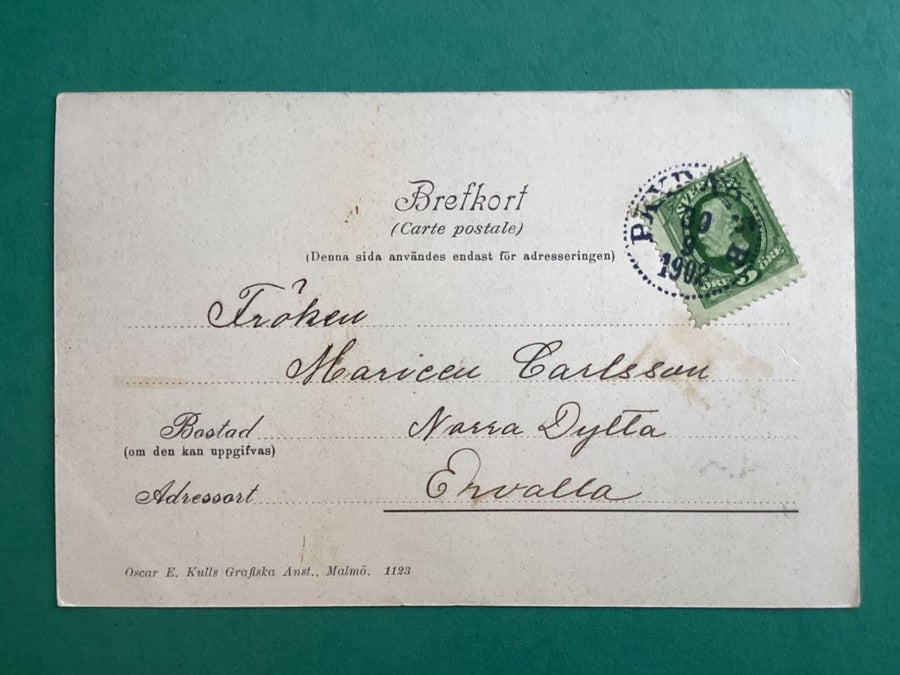 Brefkort
(Carte postale)
(Denna sida användes endast för adresseringen)
SVERIGE
1902
5
ÖRE ÖRE
Fröken
Maricen Carlsson
Bostad Norra Dylta
(om den kan uppgifvas)
Adressort Ervalla
Oscar E. Kulls Grafiska Anst., Malmö. 1123